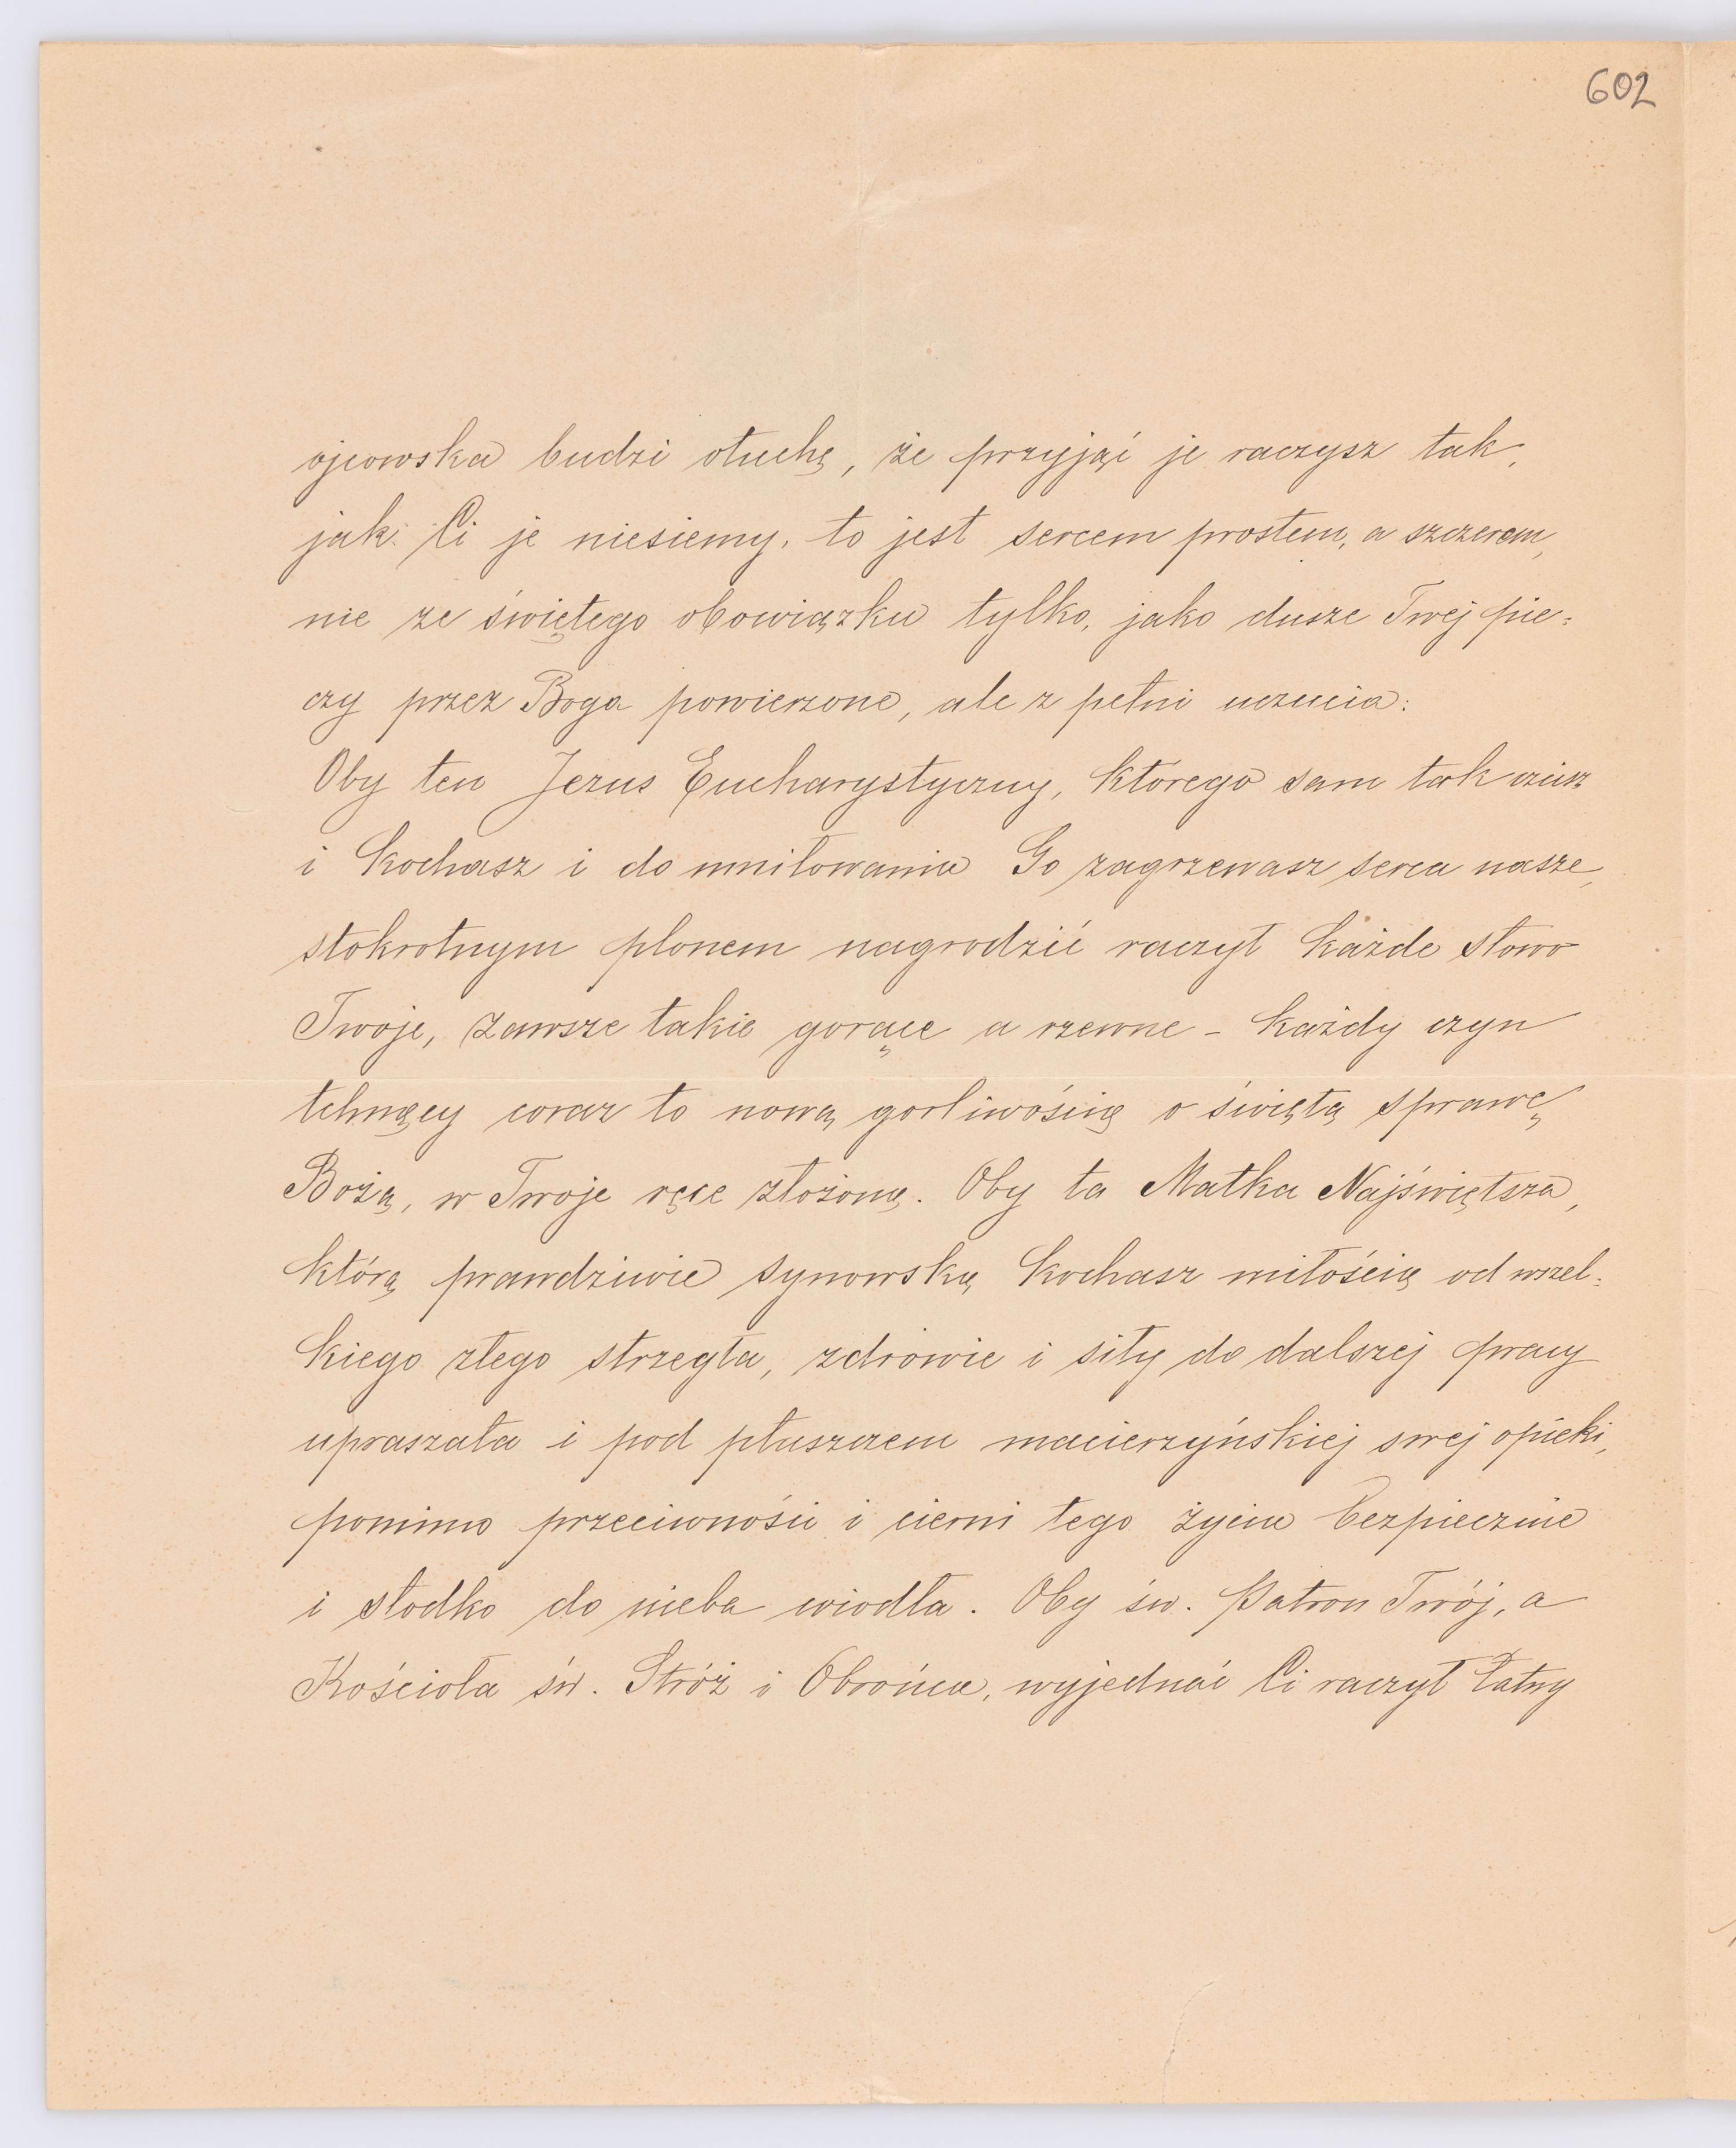 602
ojcowska budzi otuchę, że przyjąć je raczysz tak,
jak Ci je niesiemy, to jest sercem prostem, a szczerem,
nie ze świętego obowiązku tylko, jako dusze Twej pie-
czy przez Boga powierzone, ale z pełni uczucia:
Oby ten Jezus Eucharystyczny, którego sam tak czcisz
i kochasz i do umiłowania Go zagrzewasz serca nasze,
stokrotnym plonem nagrodzić raczył każde słowo
Twoje, zawsze takie gorące a rzewne – każdy czyn
tchnący coraz to nową gorliwością o świętą sprawę
Bożą, w Twoje ręce złożoną. Oby ta Matka Najświętsza,
którą prawdziwie synowską kochasz miłością od wszel-
kiego złego strzegła, zdrowie i siły do dalszej pracy
upraszała i pod płaszczem macierzyńskiej swej opieki,
pomimo przeciwności i cierni tego życia bezpiecznie
i słodko do nieba wiodła. Oby św. Patron Twój, a
Kościoła św. Stróż i Obrońca, wyjednać Ci raczył łatwy